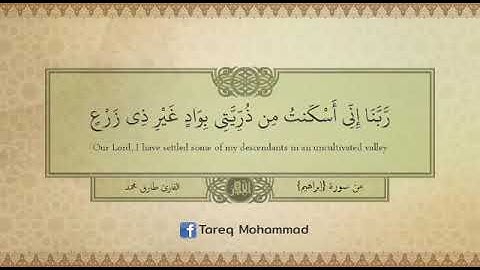 رَّبَّنَا إِنِّي أَسْكَنتُ مِن ذُرِّيَّتِي بِوَادٍ غَيْرِ ذِي زَرْعٍ
Our Lord, I have settled some of my descendants in an uncultivated valley
من سورة {إبراهيم}
القارئ طارق محمد
f Tareq Mohammad